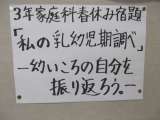 3年家庭科春休み宿題
「私の乳幼児期調べ」
ー幼いころの自分を
振り返ろう。ー